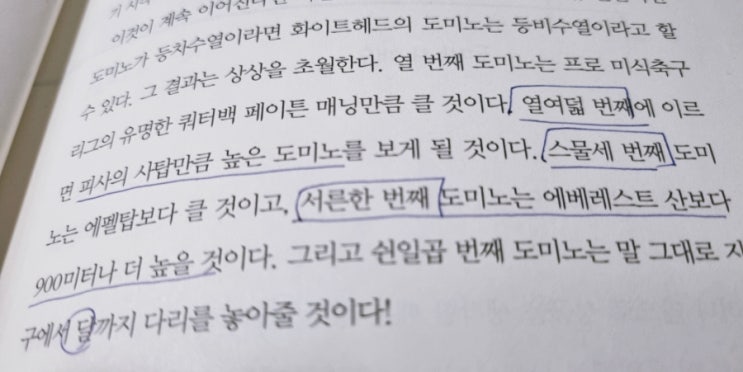 이것이 계속 이어진다
도미노가 등차수열이라면 화이트헤드의 도미노는 등비수열이라고 할
수 있다. 그 결과는 상상을 초월한다. 열 번째 도미노는 프로 미식축구
리그의 유명한 쿼터백 페이튼 매닝만큼 클 것이다. 열여덟 번째에 이르
면 피사의 사탑만큼 높은 도미노를 보게 될 것이다. 스물세 번째 도미
노는 에펠탑보다 클 것이고, 서른한 번째 도미노는 에베레스트 산보다
900미터나 더 높을 것이다. 그리고 쉰일곱 번째 도미노는 말 그대로 지
구에서 달까지 다리를 놓아줄 것이다!